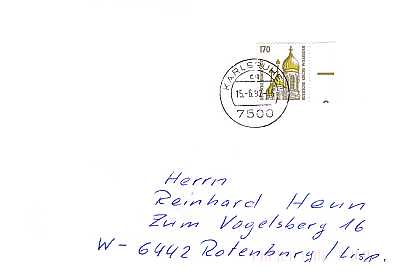 170
KARLSRUHE
15.-6.92
7500
Herrn
Reinhard Henn
Zum Vogelsberg 16
W- 6442 Rotenburg / Lisp.